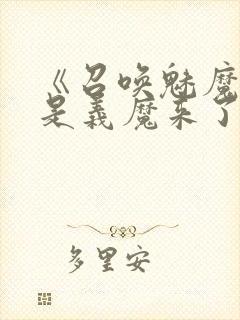 《召唤魅魔
是義魔来了
多里安